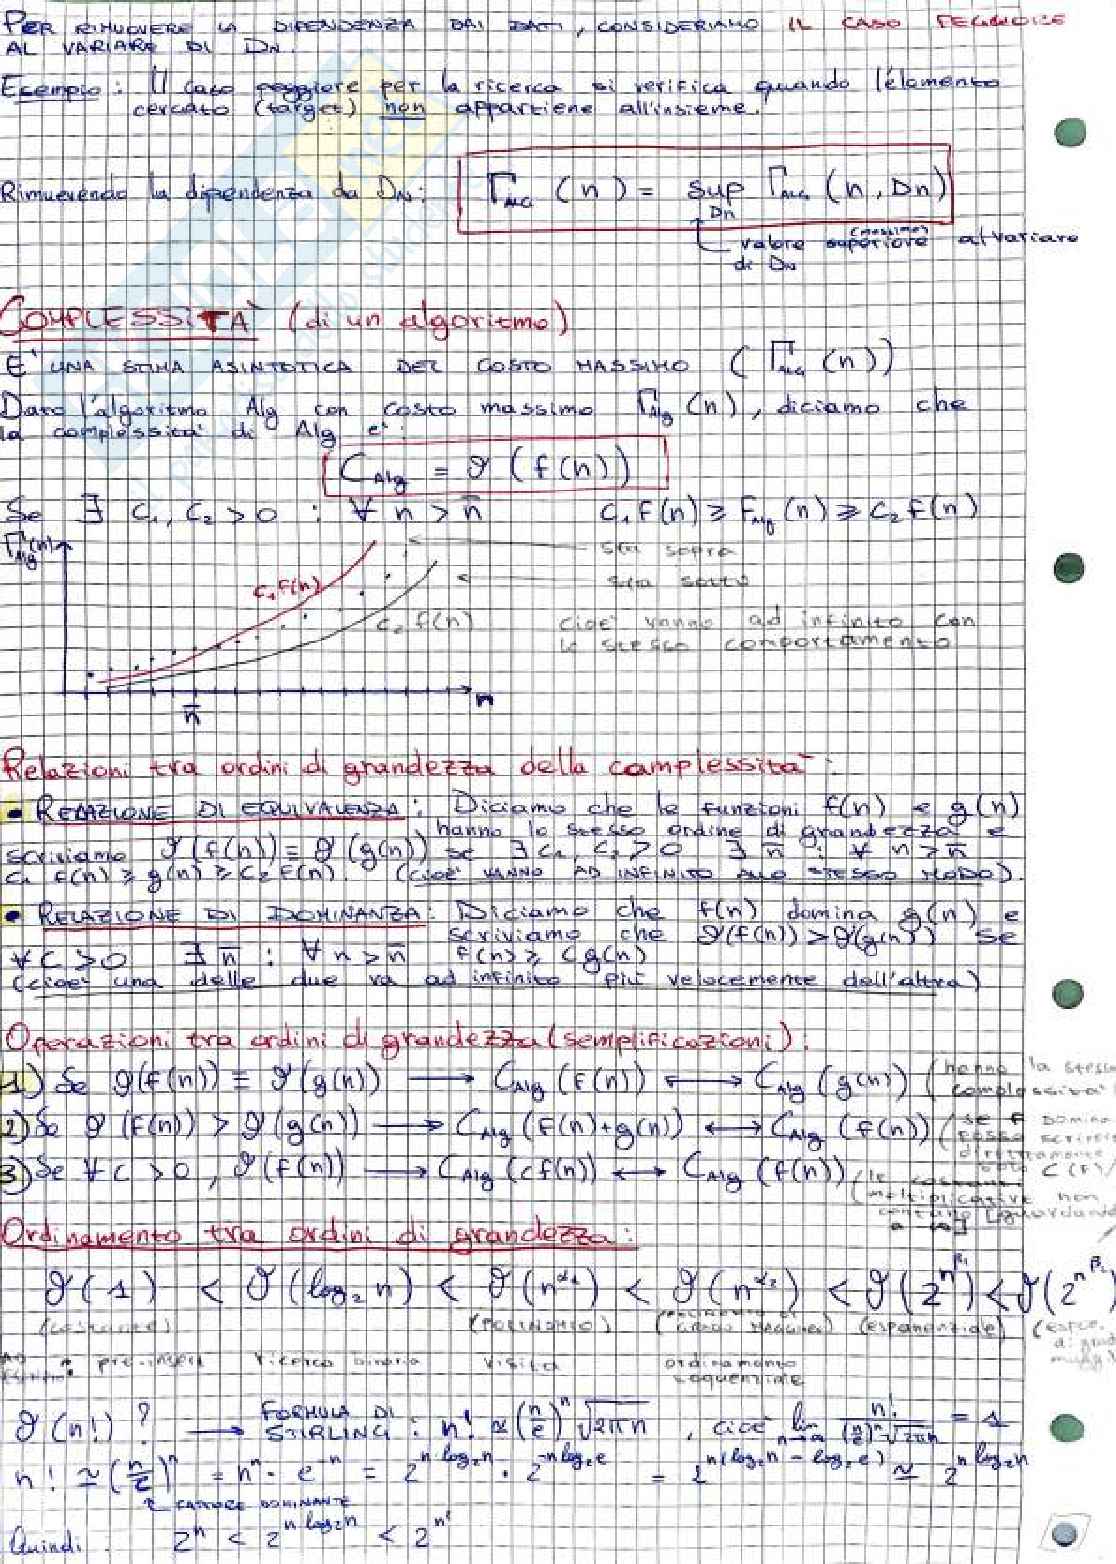 PER RIMUOVERE LA DIPENDENZA DAI DATI, CONSIDERIAMO IL CASO PEGGIORE
AL VARIARE DI Dn.
Esempio: Il caso peggiore per la ricerca si verifica quando l'elemento
cercato (target) non appartiene all'insieme.
Rimuovendo la dipendenza da Dn: Γ_Alg (n) = sup_Dn Γ_Alg (n, Dn)
(massimo)
valore superiore al variare
di Dn
COMPLESSITÀ (di un algoritmo)
E' UNA STIMA ASINTOTICA DEL COSTO MASSIMO (Γ_Alg (n))
Dato l'algoritmo Alg con costo massimo Γ_Alg (n), diciamo che
la complessità di Alg e':
C_Alg = ϑ (f(n))
Se ∃ c₁, c₂ > 0 : ∀ n > n̄ c₁ f(n) ≥ F_Alg (n) ≥ c₂ f(n)
Γ_Alg(n)
sta sopra
c₁ f(n)
sta sotto
c₂ f(n)
cioè vanno ad infinito con
lo stesso comportamento
n̄
n
Relazioni tra ordini di grandezza della complessità:
• RELAZIONE DI EQUIVALENZA: Diciamo che le funzioni f(n) e g(n)
hanno lo stesso ordine di grandezza e
scriviamo ϑ(f(n)) ≡ ϑ(g(n)) se ∃ c₁, c₂ > 0 ∃ n̄ : ∀ n > n̄
c₁ f(n) ≥ g(n) ≥ c₂ f(n). (cioè VANNO AD INFINITO ALLO STESSO MODO).
• RELAZIONE DI DOMINANZA: Diciamo che f(n) domina g(n) e
scriviamo che ϑ(f(n)) > ϑ(g(n)) se
∀ c > 0 ∃ n̄ : ∀ n > n̄ f(n) ≥ c g(n)
(cioè una delle due va ad infinito più velocemente dell'altra)
Operazioni tra ordini di grandezza (semplificazioni):
1) Se ϑ(f(n)) ≡ ϑ(g(n)) → C_Alg (f(n)) ↔ C_Alg (g(n)) (hanno la stessa
complessità
2) Se ϑ (f(n)) > ϑ(g(n)) → C_Alg (f(n)+g(n)) ↔ C_Alg (f(n)) (se f domina
posso scrivere
direttamente
solo C(f)
3) Se ∀ c > 0, ϑ(f(n)) → C_Alg (c f(n)) ↔ C_Alg (f(n)) (le costanti
moltiplicative non
contano [guardando
a ∞]
Ordinamento tra ordini di grandezza:
ϑ(1) < ϑ(log₂ n) < ϑ(n^α₁) < ϑ(n^α₂) < ϑ(2^n^β₁) < ϑ(2^n^β₂)
(costante) (POLINOMIO) (polinomio di grado maggiore) (esponenziale) (espo.
di grado
magg.
pre-insert ricerca binaria visita ordinamento
sequenziale
ϑ(n!) ? → FORMULA DI STIRLING: n! ≃ (n/e)^n √2πn, cioè lim n→∞ n!/((n/e)^n √2πn) = 1
n! ≃ (n/e)^n = n^n · e^-n = 2^n log₂n · 2^-n log₂e = 2^n(log₂n - log₂e) ≃ 2^n log₂n
FATTORE DOMINANTE
Quindi: 2^n < 2^n log₂n < 2^n²